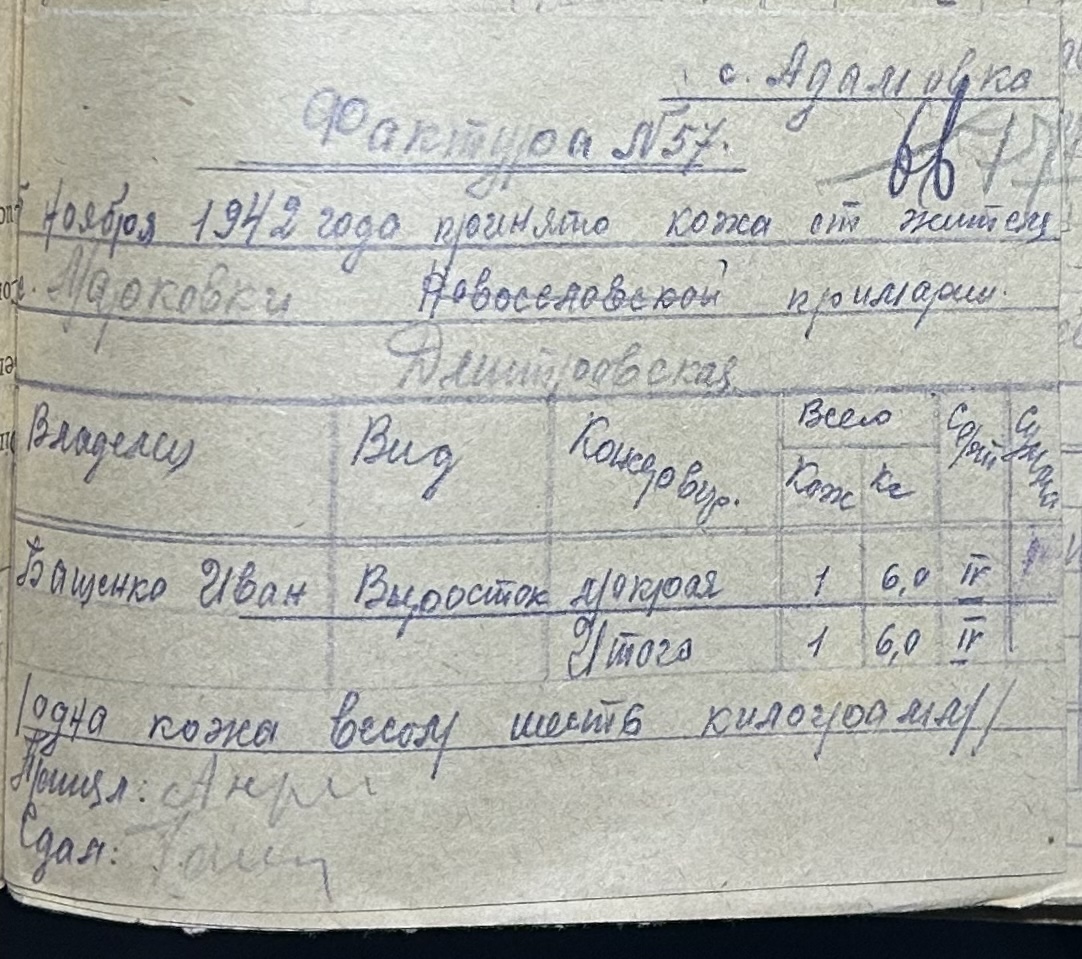 с. Адамовка
Фактура №57.
66 77
Ноября 1942 года принято кожа от жителя
с. Марковки Новоселовской примарии.
Дмитровская
Владелец Вид Консервир. Всего Сорт Сумма
Кож Кг
Бащенко Иван Выросток мокрая 1 6,0 IV
Итого 1 6,0 IV
/одна кожа весом шесть килограмм/
Принял:
Сдал: